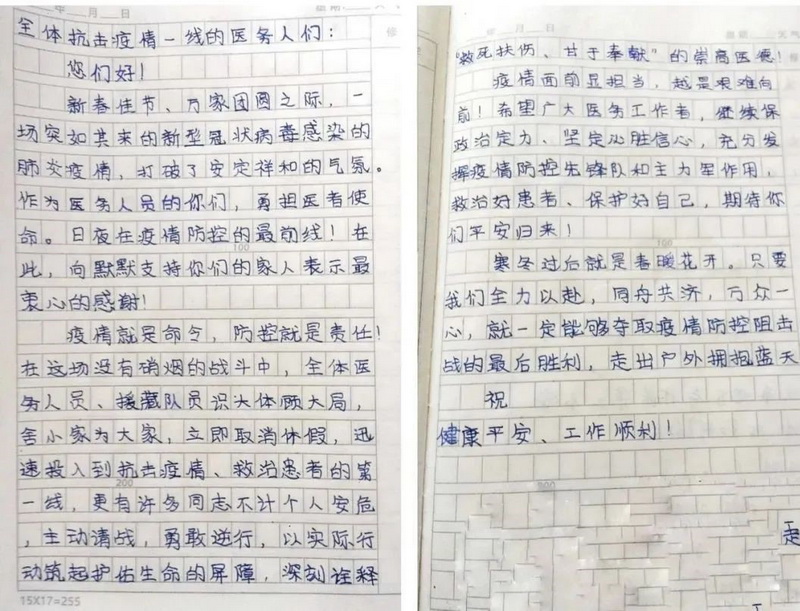 年 月 日
全体抗击疫情一线的医务人们：
您们好！
新春佳节、万家团圆之际，一
场突如其来的新型冠状病毒感染的
肺炎疫情，打破了安定祥和的气氛。
作为医务人员的你们，勇担医者使
命。日夜在疫情防控的最前线！在
此，向默默支持你们的家人表示最
衷心的感谢！
疫情就是命令，防控就是责任！
在这场没有硝烟的战斗中，全体医
务人员、援藏队员识大体顾大局，
舍小家为大家，立即取消休假，迅
速投入到抗击疫情、救治患者的第
一线，更有许多同志不计个人安危
，主动请战，勇敢逆行，以实际行
动筑起护佑生命的屏障，深刻诠释
15X17=255
年 月 日
“救死扶伤、甘于奉献”的崇高医德！
疫情面前显担当，越是艰难向
前！希望广大医务工作者，继续保
政治定力、坚定必胜信心，充分发
挥疫情防控先锋队和主力军作用，
救治好患者、保护好自己，期待你
们平安归来！
寒冬过后就是春暖花开。只要
我们全力以赴，同舟共济，万众一
心，就一定能够夺取疫情防控阻击
战的最后胜利，走出户外拥抱蓝天
祝
健康平安、工作顺利！